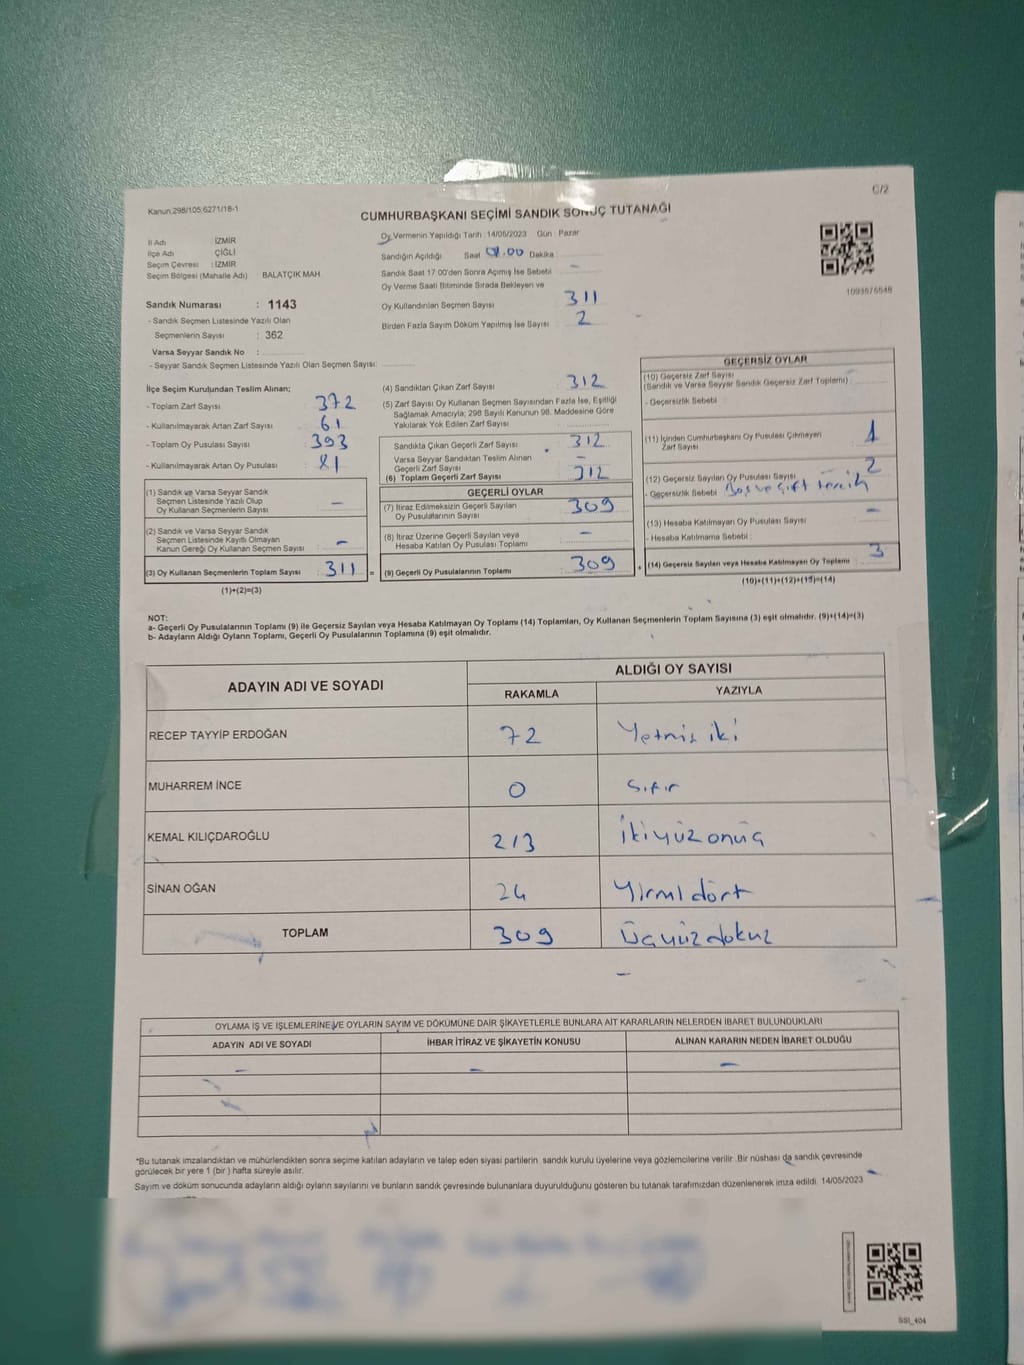 C/2
Kanun:298/105;6271/18-1
CUMHURBAŞKANI SEÇİMİ SANDIK SONUÇ TUTANAĞI
İl Adı : İZMİR
İlçe Adı : ÇİĞLİ
Seçim Çevresi : İZMİR
Seçim Bölgesi (Mahalle Adı) : BALATÇIK MAH
Sandık Numarası : 1143
- Sandık Seçmen Listesinde Yazılı Olan
Seçmenlerin Sayısı : 362
Varsa Seyyar Sandık No :
- Seyyar Sandık Seçmen Listesinde Yazılı Olan Seçmen Sayısı:
Oy Vermenin Yapıldığı Tarih : 14/05/2023 Gün : Pazar
Sandığın Açıldığı Saat Dakika
Sandık Saat 17:00'den Sonra Açılmış İse Sebebi –
Oy Verme Saati Bitiminde Sırada Bekleyen ve
Oy Kullandırılan Seçmen Sayısı 311
Birden Fazla Sayım Döküm Yapılmış İse Sayısı 2
1093576548
İlçe Seçim Kurulundan Teslim Alınan;
- Toplam Zarf Sayısı 372
- Kullanılmayarak Artan Zarf Sayısı 61
- Toplam Oy Pusulası Sayısı 393
- Kullanılmayarak Artan Oy Pusulası 81
(1) Sandık ve Varsa Seyyar Sandık
Seçmen Listesinde Yazılı Olup
Oy Kullanan Seçmenlerin Sayısı –
(2) Sandık ve Varsa Seyyar Sandık
Seçmen Listesinde Kayıtlı Olmayan
Kanun Gereği Oy Kullanan Seçmen Sayısı –
(3) Oy Kullanan Seçmenlerin Toplam Sayısı 311 =
(1)+(2)=(3)
(4) Sandıktan Çıkan Zarf Sayısı 312
(5) Zarf Sayısı Oy Kullanan Seçmen Sayısından Fazla İse, Eşitliği
Sağlamak Amacıyla; 298 Sayılı Kanunun 98. Maddesine Göre
Yakılarak Yok Edilen Zarf Sayısı
Sandıkta Çıkan Geçerli Zarf Sayısı 312
Varsa Seyyar Sandıktan Teslim Alınan
Geçerli Zarf Sayısı –
(6) Toplam Geçerli Zarf Sayısı 312
GEÇERLİ OYLAR
(7) İtiraz Edilmeksizin Geçerli Sayılan
Oy Pusulalarının Sayısı 309
(8) İtiraz Üzerine Geçerli Sayılan veya
Hesaba Katılan Oy Pusulası Toplamı –
(9) Geçerli Oy Pusulalarının Toplamı 309 +
GEÇERSİZ OYLAR
(10) Geçersiz Zarf Sayısı
(Sandık ve Varsa Seyyar Sandık Geçersiz Zarf Toplamı)
- Geçersizlik Sebebi :
(11) İçinden Cumhurbaşkanı Oy Pusulası Çıkmayan
Zarf Sayısı 1
(12) Geçersiz Sayılan Oy Pusulası Sayısı 2
- Geçersizlik Sebebi Boş ve çift tercih
(13) Hesaba Katılmayan Oy Pusulası Sayısı –
- Hesaba Katılmama Sebebi :
(14) Geçersiz Sayılan veya Hesaba Katılmayan Oy Toplamı 3
(10)+(11)+(12)+(13)=(14)
NOT:
a- Geçerli Oy Pusulalarının Toplamı (9) ile Geçersiz Sayılan veya Hesaba Katılmayan Oy Toplamı (14) Toplamları, Oy Kullanan Seçmenlerin Toplam Sayısına (3) eşit olmalıdır. (9)+(14)=(3)
b- Adayların Aldığı Oyların Toplamı, Geçerli Oy Pusulalarının Toplamına (9) eşit olmalıdır.
ADAYIN ADI VE SOYADI
ALDIĞI OY SAYISI
RAKAMLA YAZIYLA
RECEP TAYYİP ERDOĞAN 72 Yetmiş iki
MUHARREM İNCE 0 Sıfır
KEMAL KILIÇDAROĞLU 213 İkiyüz onüç
SİNAN OĞAN 24 Yirmi dört
TOPLAM 309 Üçyüz dokuz
OYLAMA İŞ VE İŞLEMLERİNE VE OYLARIN SAYIM VE DÖKÜMÜNE DAİR ŞİKAYETLERLE BUNLARA AİT KARARLARIN NELERDEN İBARET BULUNDUKLARI
ADAYIN ADI VE SOYADI İHBAR İTİRAZ VE ŞİKAYETİN KONUSU ALINAN KARARIN NEDEN İBARET OLDUĞU
– – –
*Bu tutanak imzalandıktan ve mühürlendikten sonra seçime katılan adayların ve talep eden siyasi partilerin sandık kurulu üyelerine veya gözlemcilerine verilir. Bir nüshası da sandık çevresinde
görülecek bir yere 1 (bir) hafta süreyle asılır.
Sayım ve döküm sonucunda adayların aldığı oyların sayılarını ve bunların sandık çevresinde bulunanlara duyurulduğunu gösteren bu tutanak tarafımızdan düzenlenerek imza edildi. 14/05/2023
SSI_404